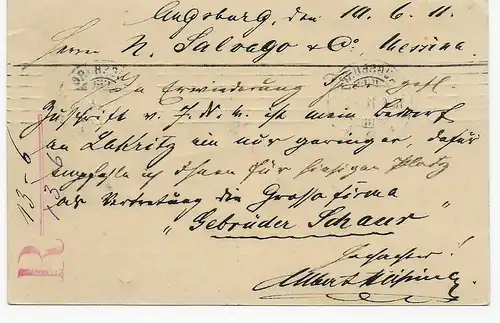 Augsburg, den 10. 6. 11.
Herrn N. Salvago & Co. Messina
In Erwiderung Ihrer gefl.
Zuschrift v. 7. d. M. ist mein Bedarf
an Lakritz ein nur geringer, dafür
empfehle ich Ihnen für hiesigen Platz
als Vertretung die Grossfirma
„Gebrüder Schaur"
Hochachtend!
Albert
13 - 6
13/6
R